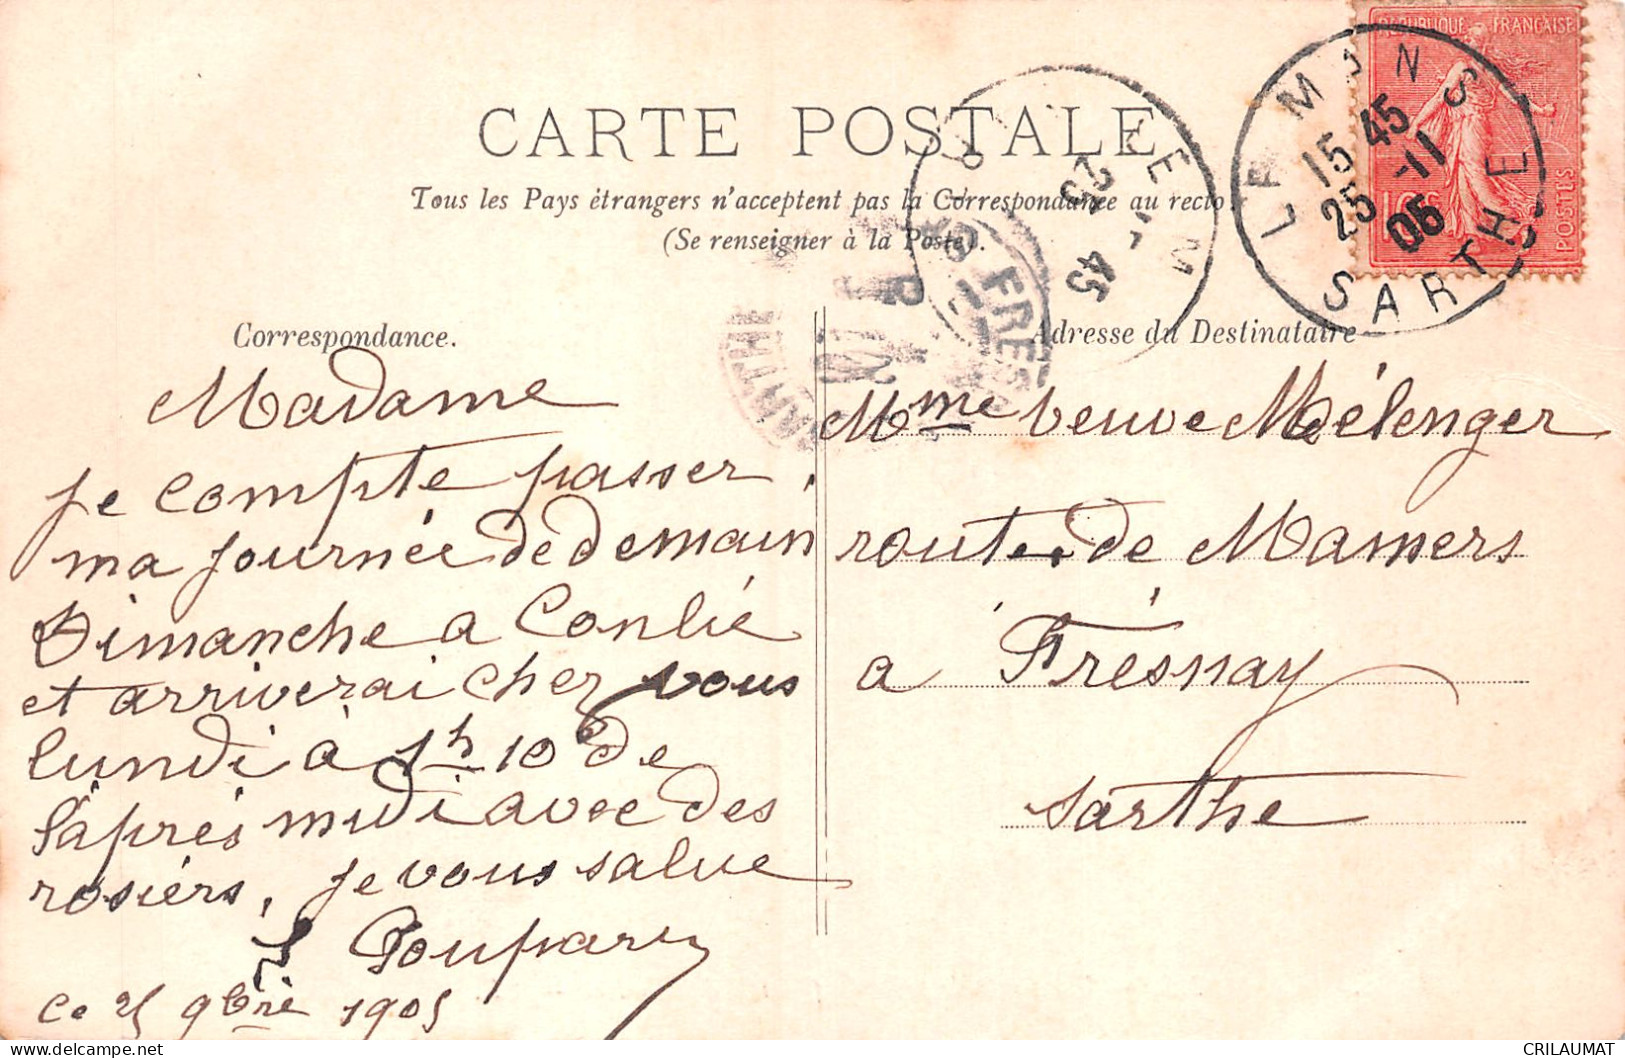 CARTE POSTALE
Tous les Pays étrangers n'acceptent pas la Correspondance au recto
(Se renseigner à la Poste).
REPUBLIQUE FRANÇAISE
10c
POSTES
LE MANS
15 45
25 -11
05
SARTHE
25
45
FRES
SARTHE
Correspondance.
Madame
je compte passer
ma journée de demain
Dimanche a Conlié
et arriverai chez vous
lundi à 1h 10 de
l'après midi avec des
rosiérs, je vous salue
Poupard
Ce 25 9bre 1905
Adresse du Destinataire
Mme veuve Mélenger
route de Mamers
a Frésnay
Sarthe
CRILAUMAT